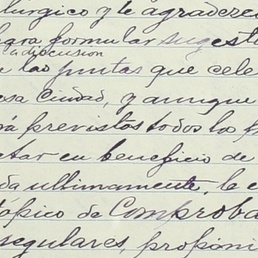 lurgico y le agradecer
para formular sugesti
a discusion
e las juntas que cele
esa Ciudad, y aunque
rá previstos todos los p
etar en beneficio de
da ultimamente, la c
tópico de Comproba
segulares, proponi